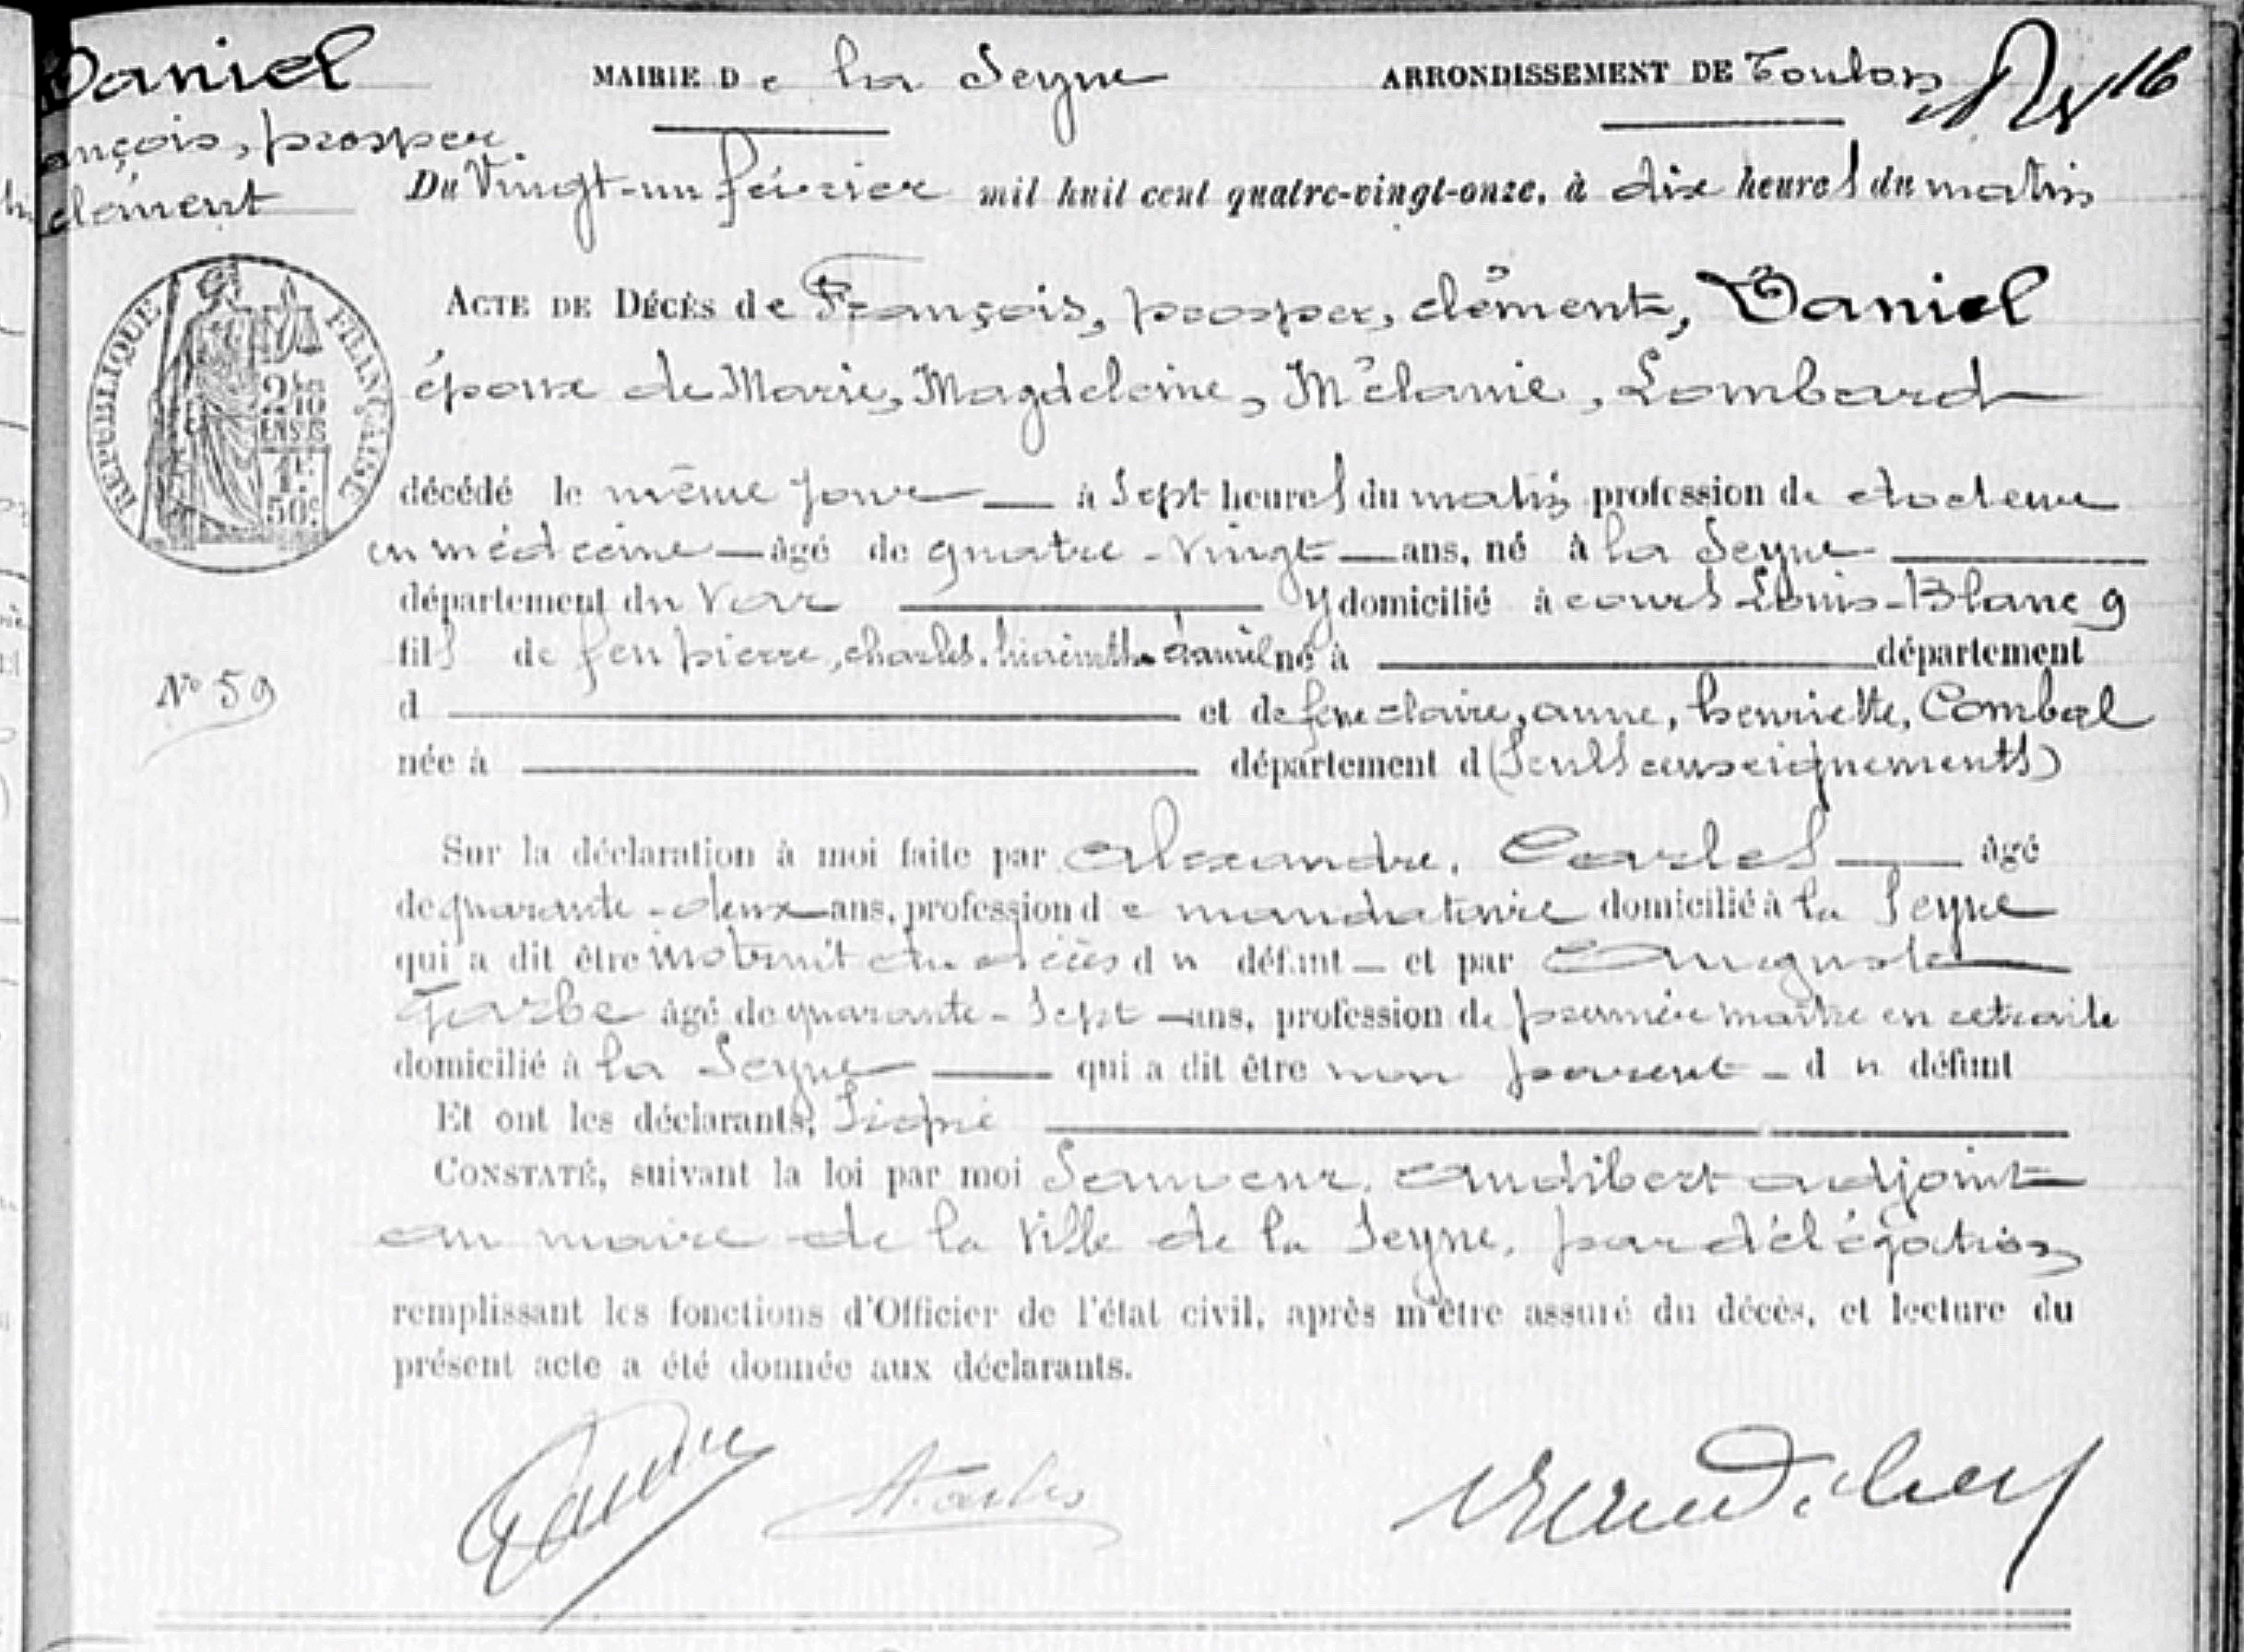 Daniel
ançois, prosper
clément
MAIRIE De la Seyne
ARRONDISSEMENT DE Toulon
16
Du Vingt-un février mil huit cent quatre-vingt-onze, à dix heures du matin
ACTE DE DÉCÈS de François, prosper, clément, Daniel
époux de Marie, Magdeleine, Mélanie, Lombard
RÉPUBLIQUE FRANÇAISE
décédé le même jour à Sept heures du matin profession de docteur
en médecine âgé de quatre-vingt ans, né à la Seyne
département du Var y domicilié à cours Louis-Blanc 9
fils de feu pierre, charles, hiacinthe daniel né à département
N° 59
d et de feue claire, anne, henriette, Combal
née à département d (Seuls renseignements)
Sur la déclaration à moi faite par Alexandre, Carles âgé
de quarante-deux ans, profession de mandataire domicilié à la Seyne
qui a dit être instruit du décès du défunt et par Auguste
Garbe âgé de quarante-Sept ans, profession de premier maître en retraite
domicilié à la Seyne qui a dit être non parent du défunt
Et ont les déclarants, Signé
CONSTATÉ, suivant la loi par moi Sauveur, Audibert adjoint
au maire de la Ville de la Seyne, par délégation
remplissant les fonctions d'Officier de l'état civil, après m'être assuré du décès, et lecture du
présent acte a été donnée aux déclarants.
A. Carles